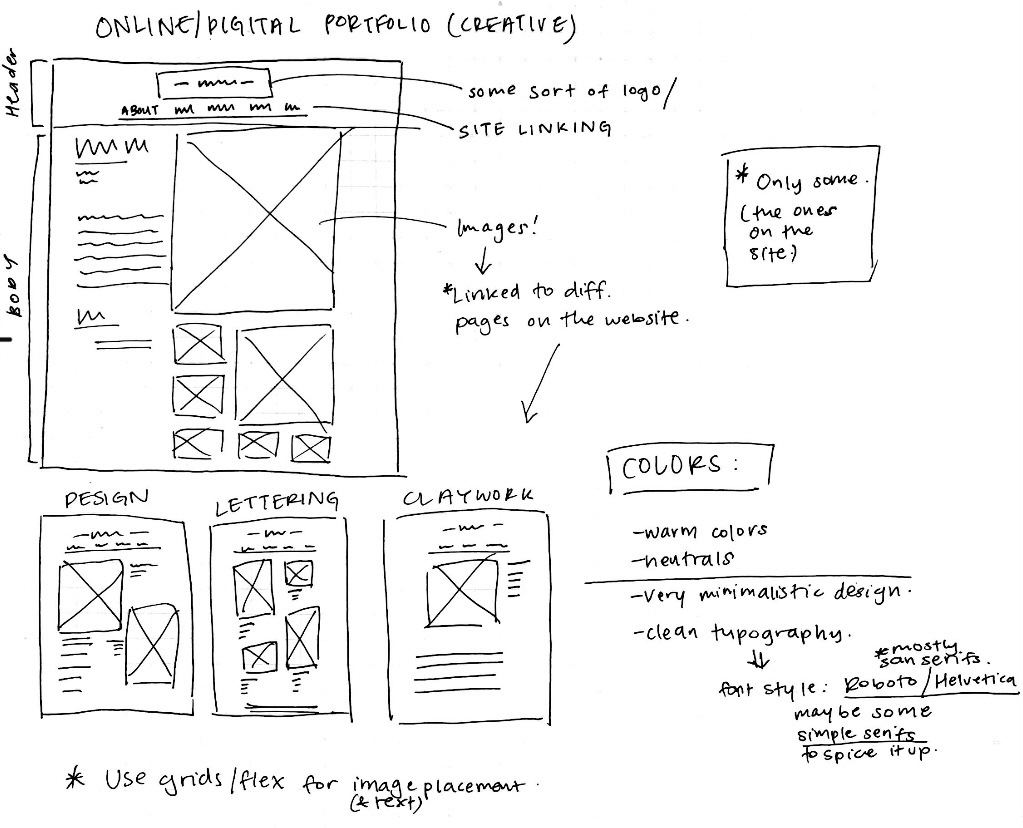 ONLINE/DIGITAL PORTFOLIO (CREATIVE)
Header
some sort of logo/
ABOUT
SITE LINKING
BODY
Images!
*Linked to diff.
pages on the website.
* Only some.
(the ones
on the
site)
DESIGN
LETTERING
CLAYWORK
COLORS:
-warm colors
-neutrals
-very minimalistic design.
-clean typography.
*mostly
san serifs.
font style: Roboto/Helvetica
maybe some
simple serifs
to spice it up.
* Use grids/flex for image placement.
(& text)